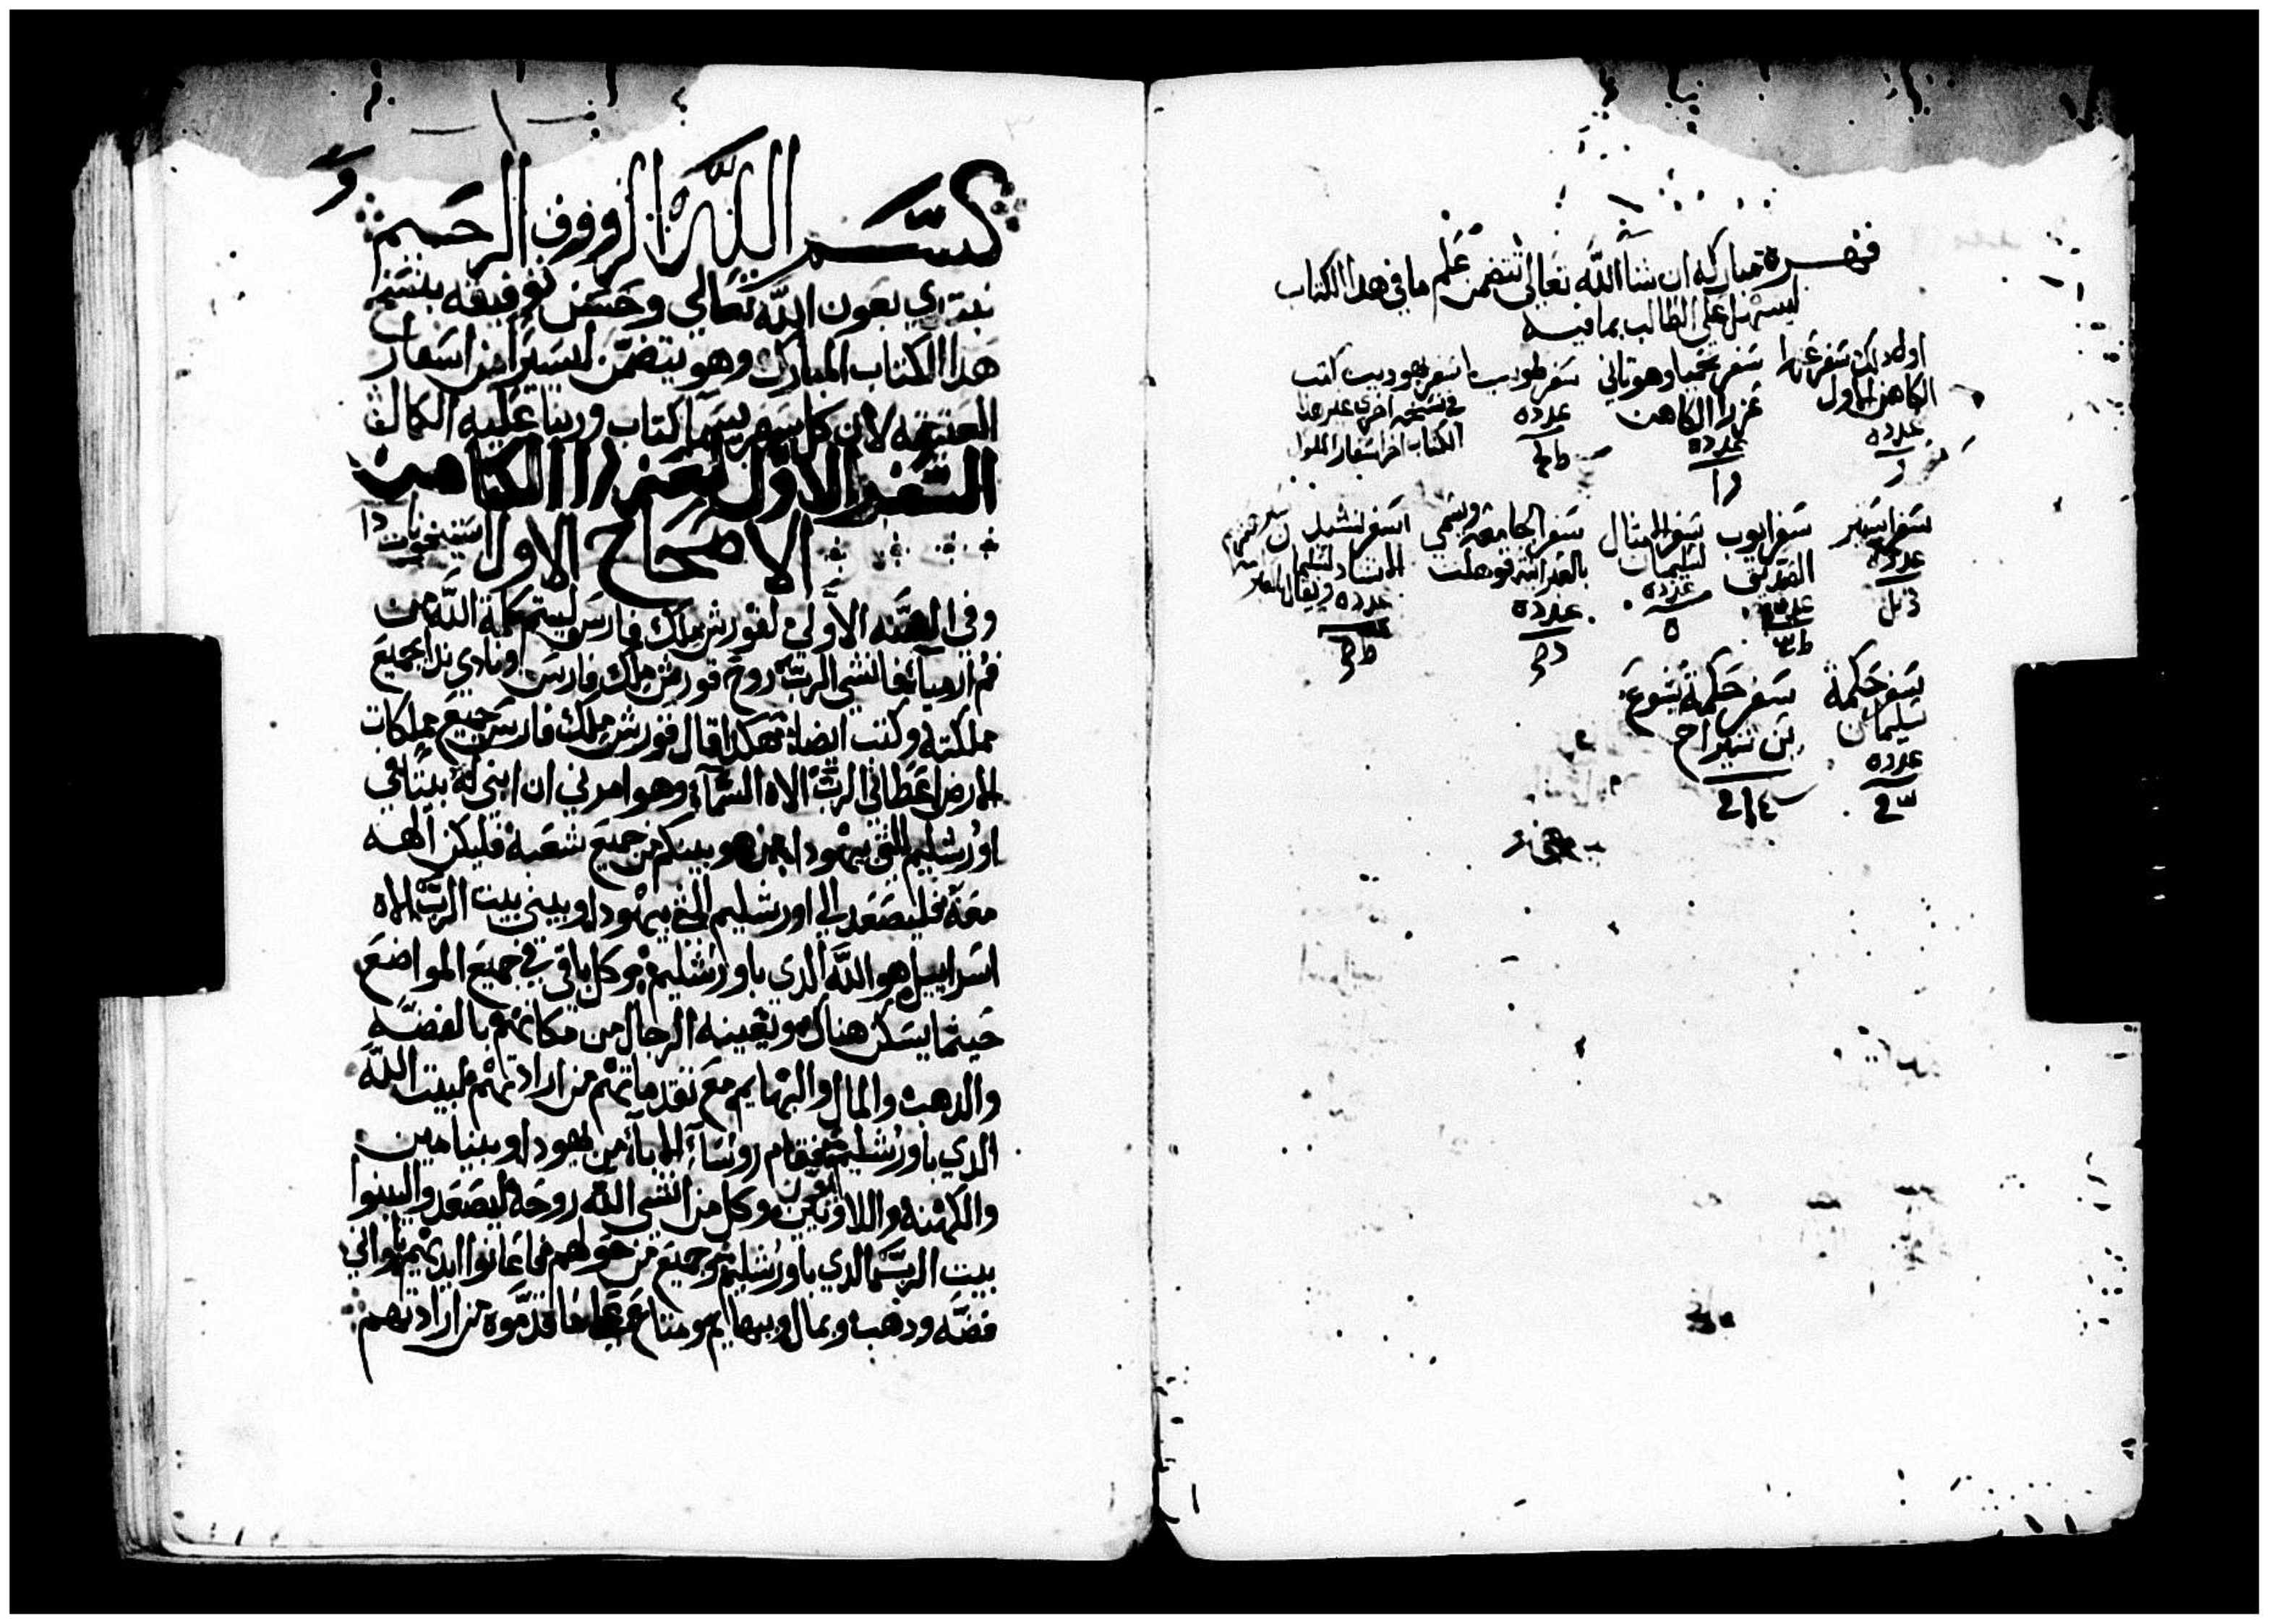 فهرسة مباركه ان شا الله تعالى تتضمن علم ما في هدا الكتاب
ليسهل على الطالب بما فيه
اول دلك سفر عزرا
الكاهن الاول
عدده
سفر نحميا وهو تاني
عزرا الكاهن
عدده
سفر طوبيا
عدده
سفر يهوديت كتب
في نسخه اخرى غير هدا
الكتاب اخر اسفار الملوك
سفر استير
عدده
سفر ايوب
الصديق
عدده
سفر الامثال
لسليمان
عدده
سفر الجامعة ويسمى
بالعبرانيه قوهلت
عدده
سفر نشيد
الانشاد لسليمان
عدده
سفر حكمة
سليمان
عدده
سفر حكمة يشوع
بن شيراخ
بسم الله الرووف الرحيم
نبتدي بعون الله تعالى وحسن توفيقه بنسخ
هدا الكتاب المبارك وهو يتضمن اسيرا من اسفار
العتيقه لان كل سفر يسما كتاب وربنا عليه الكمال
السفر الاول لعزرا الكاهن
الاصحاح الاول
وفي السنه الاولى لقورش ملك فارس ليتم كلمة الله من
فم ارميا فانشى الرب روح قورش ملك فارس ونادي ندا بجميع
مملكته وكتب ايضا هكدا قال قورش ملك فارس جميع مملكات
الارض اعطاني الرب الاه السماء وهو امرني ان ابني له بيتا في
اورشليم التي بيهودا من هو بينكم من جميع شعبه فليكن الهه
معه فليصعد الى اورشليم التي بيهودا ويبني بيت الرب الاه
اسراييل هو الله الدي باورشليم وكل باقي في جميع المواضع
حيثما يسكن هناك ويعينه الرجال من مكانهم بالفضه
والدهب والمال والبهايم مع تقدماتهم من ارادتهم لبيت الله
الدي باورشليم فقام روساء الاباء من يهودا وبنيامين
والكهنه واللاويين وكل من انشى الله روحه ليصعد واليبنوا
بيت الرب الدي باورشليم وجميع من حولهم اعانوا ايديهم باواني
فضه ودهب وبمال وبهايم ومتاع ما قدموه من ارادتهم